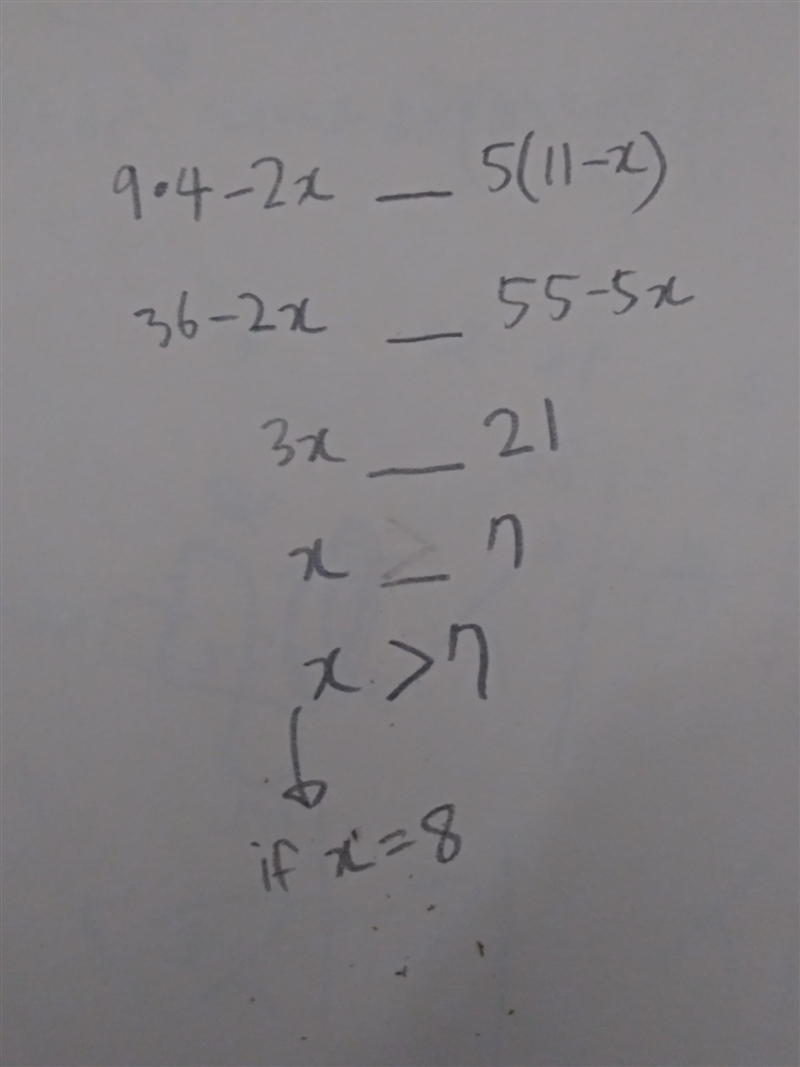 9·4-2x _ 5(11-x)
36-2x _ 55-5x
3x _ 21
x _ 7
x > 7
↓
if x=8